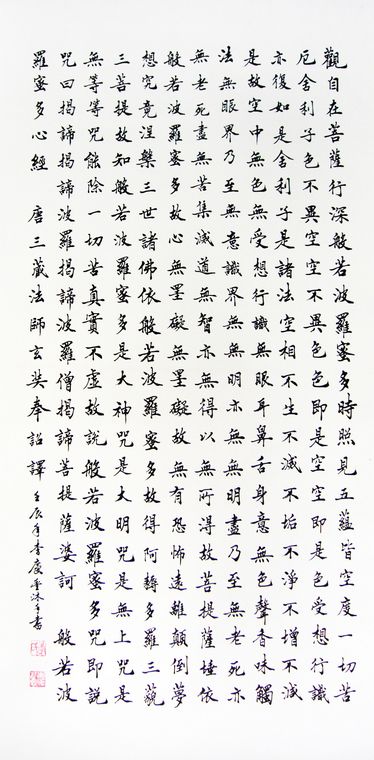 觀自在菩薩行深般若波羅蜜多時照見五蘊皆空度一切苦
厄舍利子色不異空空不異色色即是空空即是色受想行識
亦復如是舍利子是諸法空相不生不滅不垢不淨不增不減
是故空中無色無受想行識無眼耳鼻舌身意無色聲香味觸
法無眼界乃至無意識界無無明亦無無明盡乃至無老死亦
無老死盡無苦集滅道無智亦無得以無所得故菩提薩埵依
般若波羅蜜多故心無罣礙無罣礙故無有恐怖遠離顛倒夢
想究竟涅槃三世諸佛依般若波羅蜜多故得阿耨多羅三藐
三菩提故知般若波羅蜜多是大神咒是大明咒是無上咒是
無等等咒能除一切苦真實不虛故說般若波羅蜜多咒即說
咒曰揭諦揭諦波羅揭諦波羅僧揭諦菩提薩婆訶 般若波
羅蜜多心經 唐三藏法師玄奘奉詔譯 壬辰年春慶沐手書